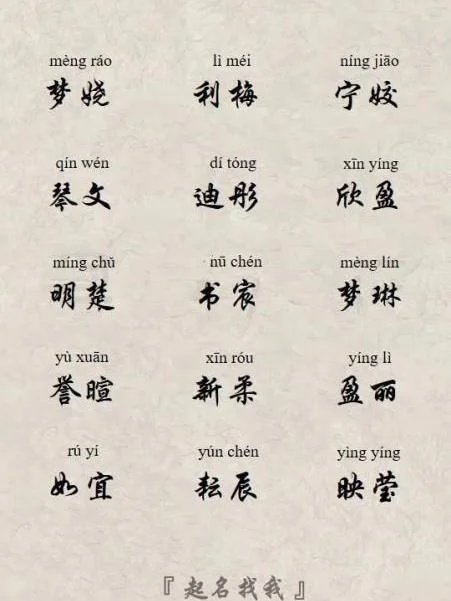 mèng ráo lì méi níng jiāo
梦娆 利梅 宁姣
qín wén dí tóng xīn yíng
琴文 迪彤 欣盈
míng chǔ nū chén mèng lín
明楚 书宸 梦琳
yù xuān xīn róu yíng lì
誉暄 新柔 盈丽
rú yí yún chén yìng yíng
如宜 耘辰 映莹
『起名找我』